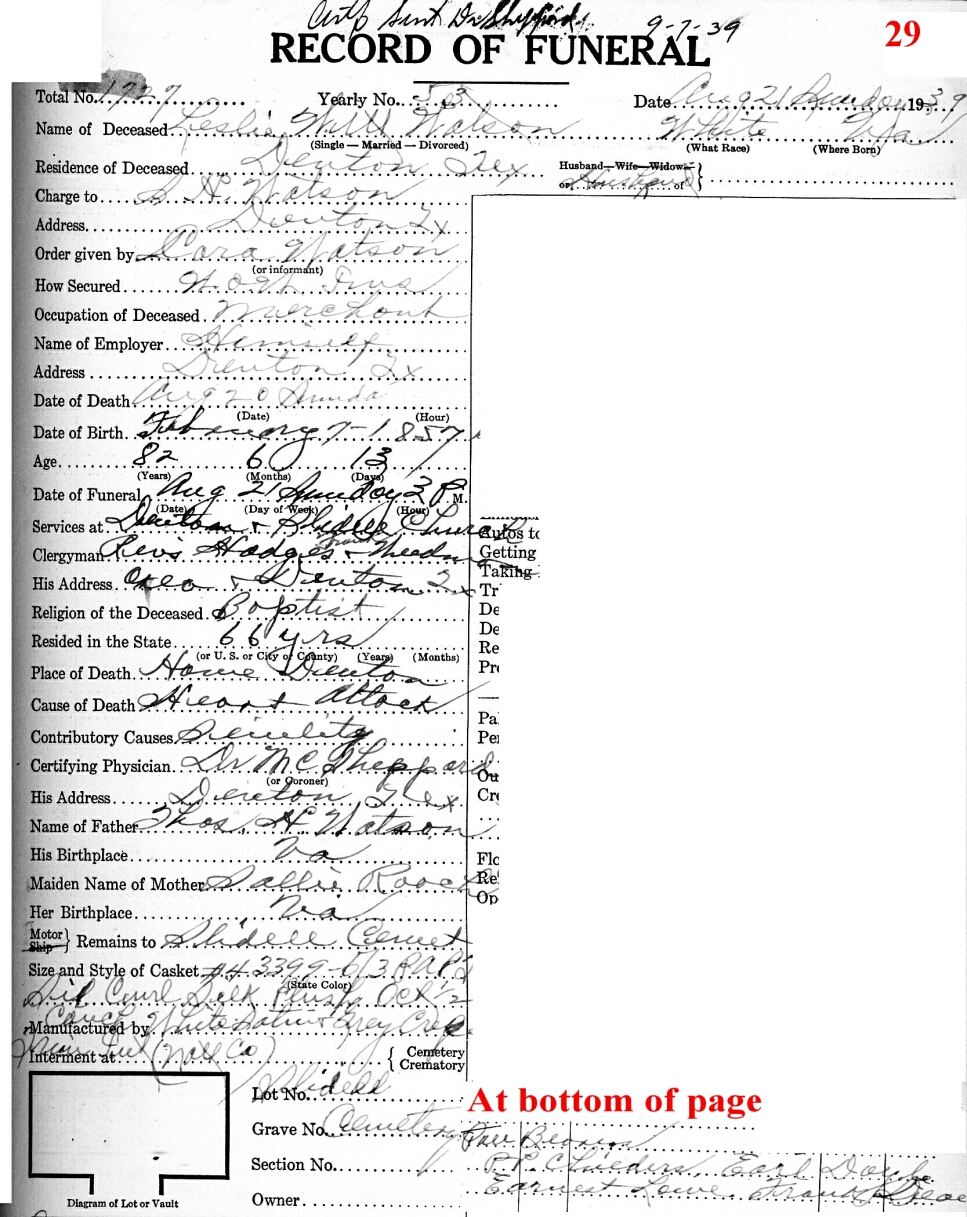 Sent Dr Sheppard 9-7-39
29
RECORD OF FUNERAL
Total No. 1727 Yearly No. 53 Date Aug 21 Sunday 1939
Name of Deceased Leslie Watson White Va
(Single — Married — Divorced) (What Race) (Where Born)
Residence of Deceased Denton Tex Husband—Wife—Widow
or Husband of
Charge to S. H. Watson
Address Denton Tx
Order given by Cora Watson
(or informant)
How Secured
Occupation of Deceased Merchant
Name of Employer Himself
Address Denton Tx
Date of Death Aug 20 Sunda
(Date) (Hour)
Date of Birth February 7-1857
Age 82 6 13
(Years) (Months) (Days)
Date of Funeral Aug 21 Sunday 3 P.M.
(Date) (Day of Week) (Hour)
Services at Denton & Slidell Church
Autos to
Clergyman Revs Hodges &
Getting
Taking
His Address & Denton Tx
Tr
Religion of the Deceased Baptist
De
De
Resided in the State 66 yrs
Re
(or U. S. or City or County) (Years) (Months)
Place of Death Home Denton
Pre
Cause of Death Heart Attack
Pa
Contributory Causes Senility
Per
Certifying Physician Dr M C Sheppard
(or Coroner)
Ou
His Address Denton Tex
Cre
Name of Father Thos. H Watson
His Birthplace Va
Flo
Maiden Name of Mother Sallie Roach
Re
Op
Her Birthplace Va
Motor
Ship } Remains to Slidell Cemet
Size and Style of Casket #4 3399-6/3
(State Color)
Sil Curl Silk Plush Oct 1/2
Couch
Manufactured by White Satin & Grey Crepe
Interment at { Cemetery
Crematory
Lot No. Slidell
At bottom of page
Grave No. Cemetery Pall Bearers
Section No. Earl
Earnest Lowe Frank
Owner
Diagram of Lot or Vault